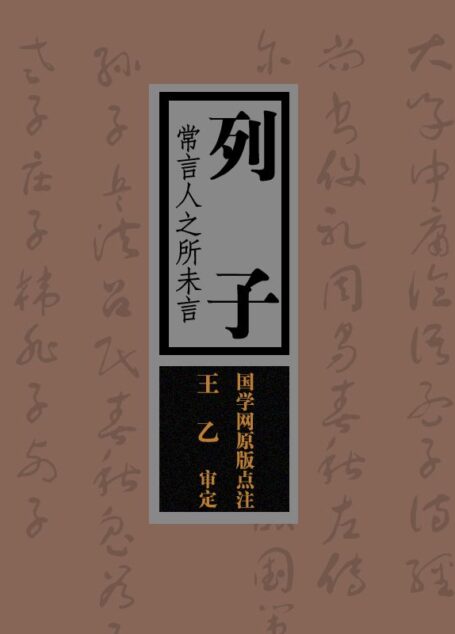 列子
常言人之所未言
国学网原版点注
王乙 审定
大学中庸论语孟子诗经
尚书仪礼周易春秋左传
尔
国策
孙子兵法吕氏春秋鬼谷子
老子庄子韩非子列子